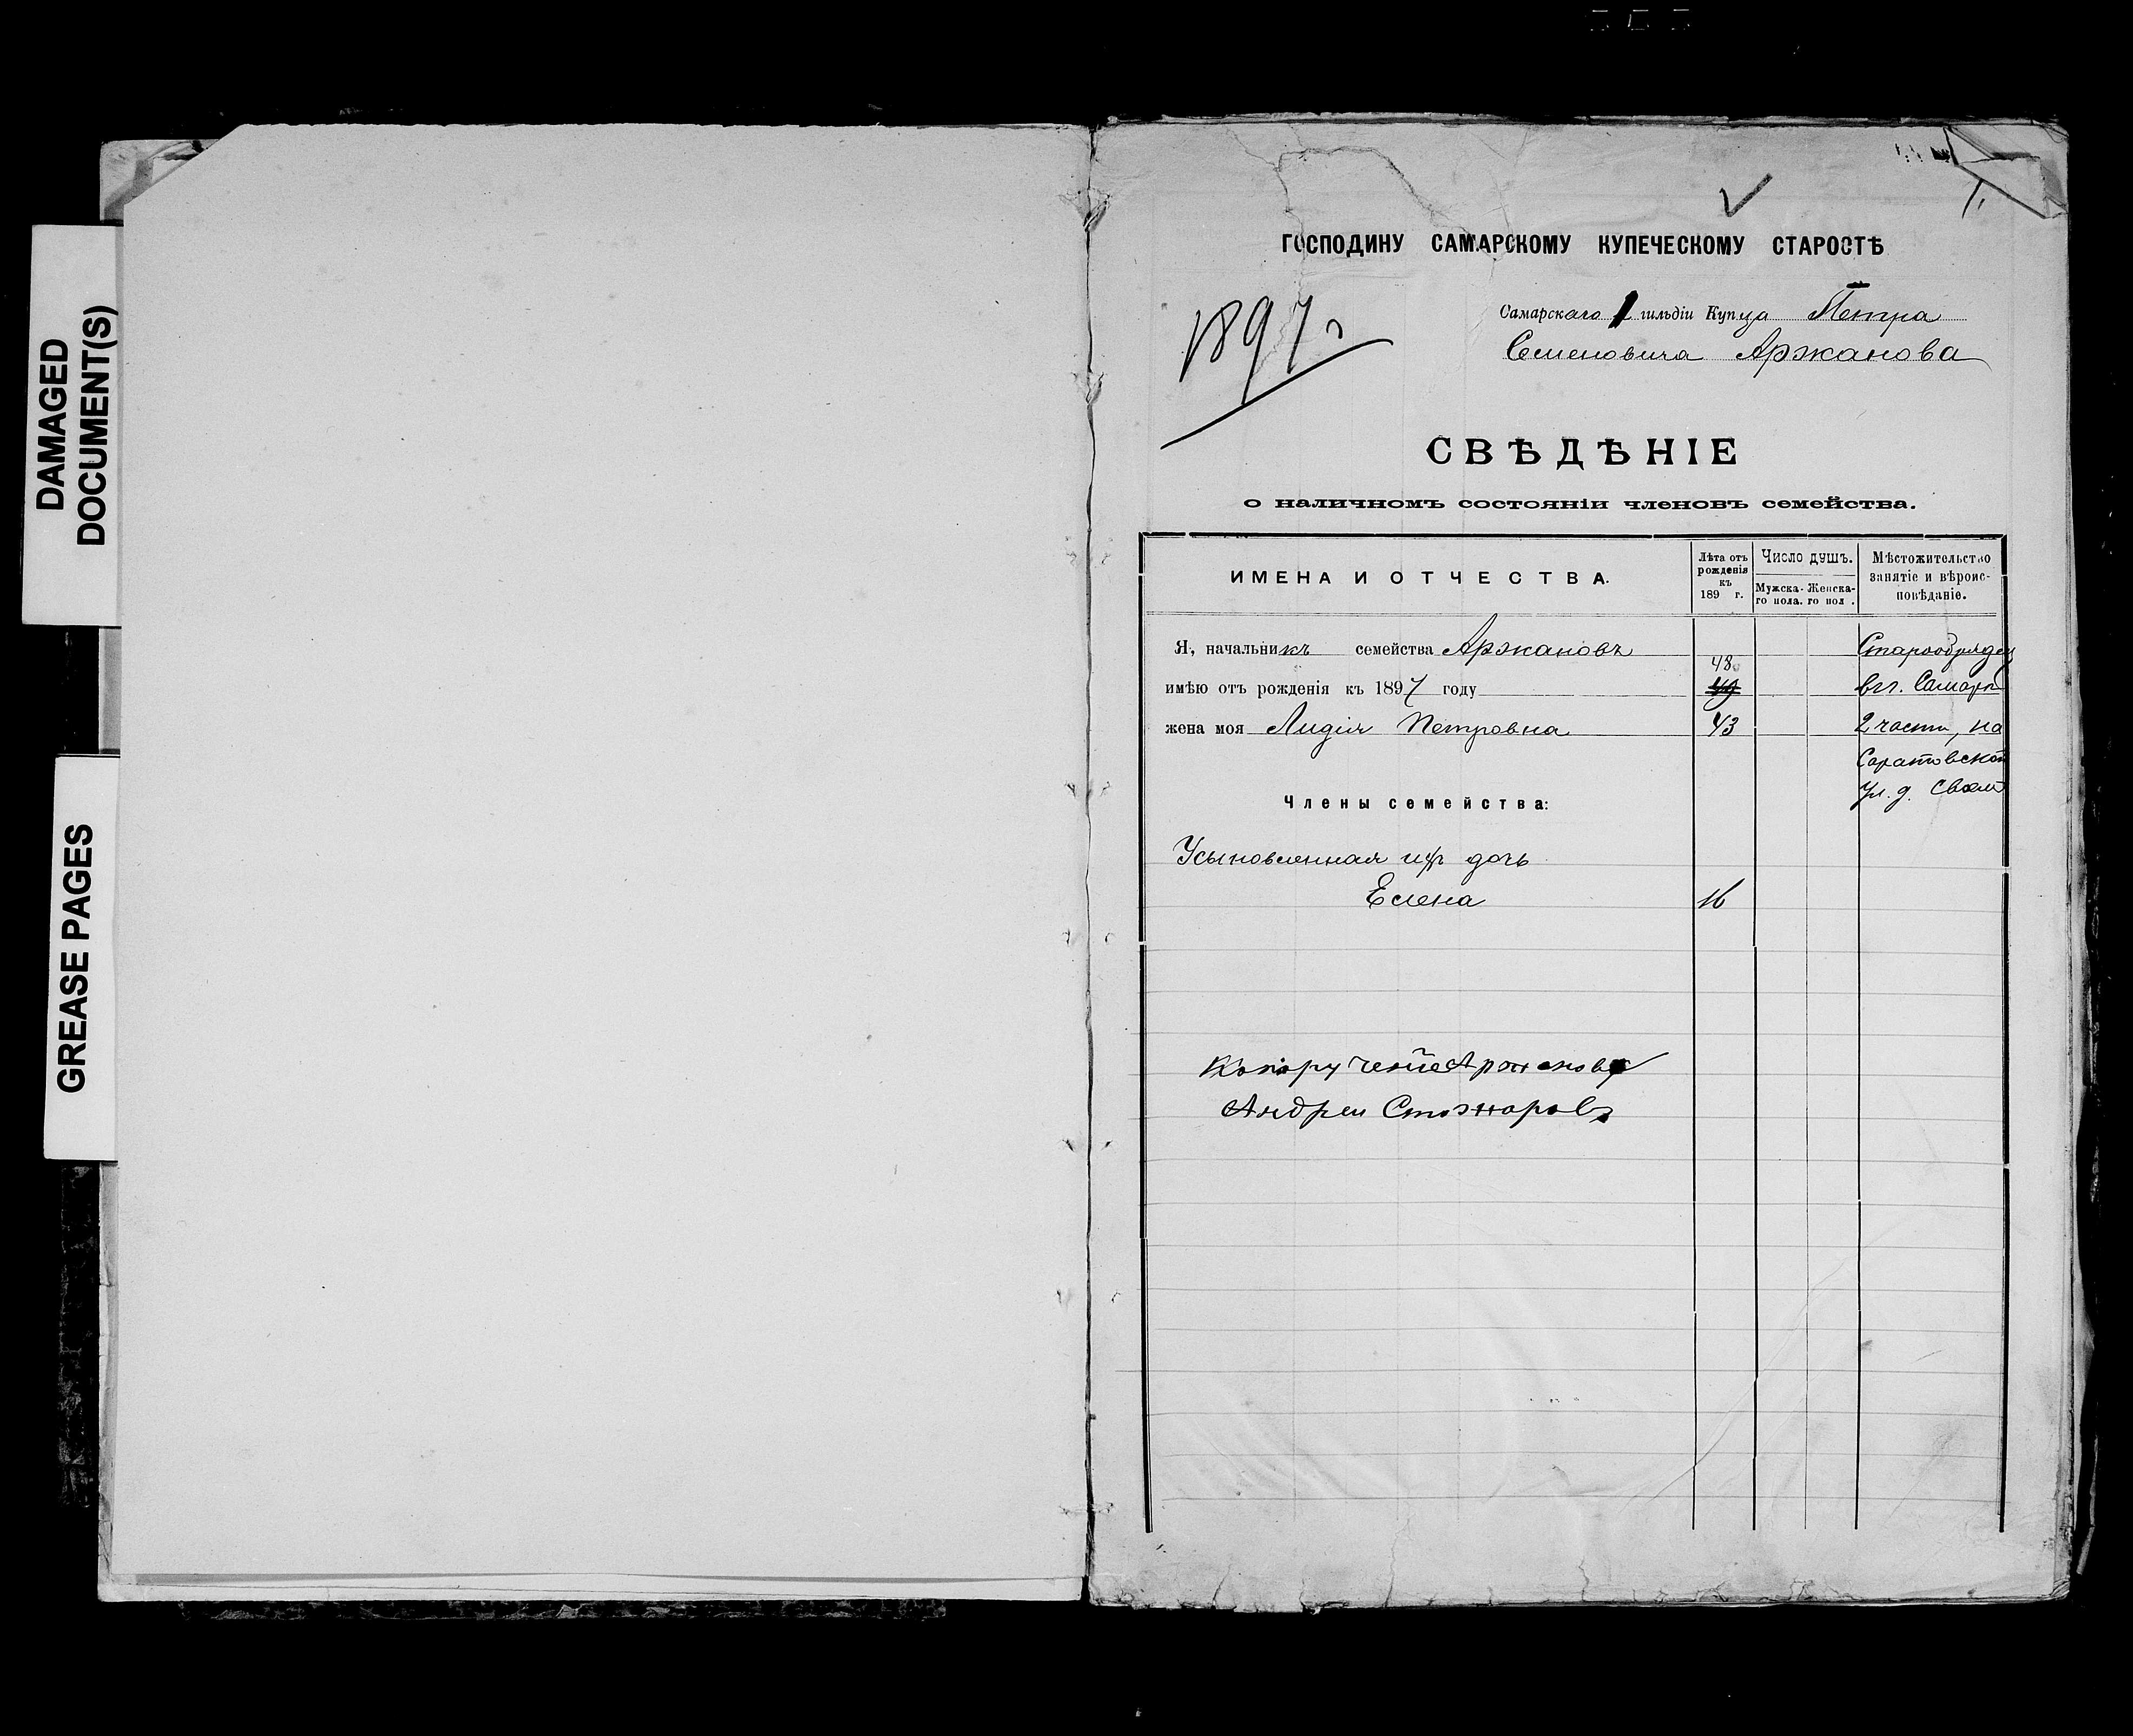 DAMAGED
DOCUMENT(S)
GREASE PAGES
1.
ГОСПОДИНУ САМАРСКОМУ КУПЕЧЕСКОМУ СТАРОСТѢ
1897 г
Самарскаго 1 гильдіи Купца Петра
Семеновича Аржанова
СВѢДѢНІЕ
о наличномъ состояніи членовъ семейства.
ИМЕНА И ОТЧЕСТВА.
Лѣта отъ рожденія къ 189 г.
Число душъ.
Мужска-го пола.
Женска-го пол .
Мѣстожительство занятіе и вѣроис-повѣданіе.
Я, начальникъ семейства Аржановъ Старообрядец
48
имѣю отъ рожденія къ 1897 году 49 въ г. Самарѣ
жена моя Лидія Петровна 43 2 части, на
Саратовской
Члены семейства: ул. д. свой
Усыновленная дочь
Елена 16
Аржанова
Андрей Стожаровъ